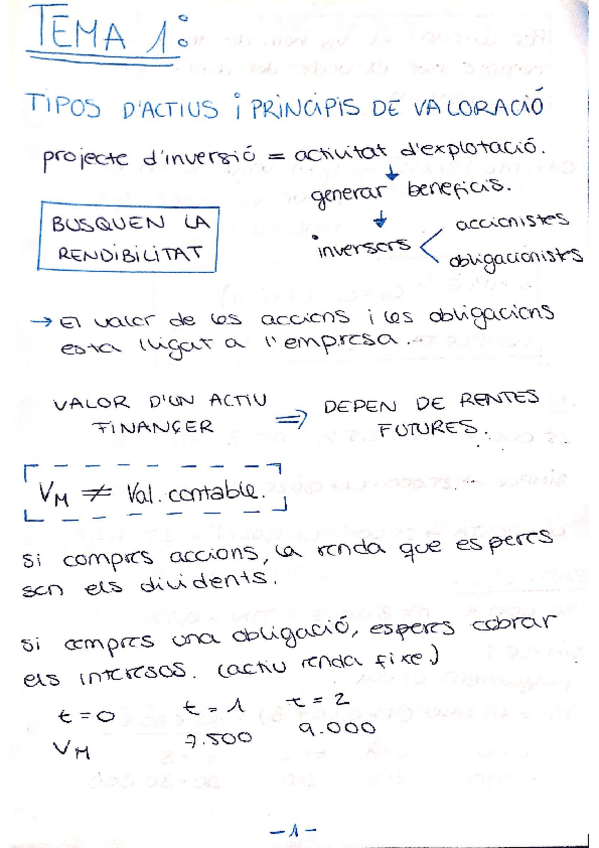 TEMA 1:
TIPOS D'ACTIUS i PRINCIPIS DE VALORACIÓ
projecte d'inversió = activitat d'explotació.
↓
generar beneficis.
BUSQUEN LA
RENDIBILITAT
↓
inversors < accionistes
obligacionistes
→ El valor de les accions i les obligacions
esta lligat a l'empresa.
VALOR D'UN ACTIU
FINANÇER
⇒ DEPEN DE RENTES
FUTURES.
VM ≠ Val. contable.
si compres accions, la renda que esperes
son els dividents.
si compres una obligació, esperes cobrar
els interesos. (actiu renda fixe)
t=0 t=1 t=2
VM 7.500 9.000
-1-